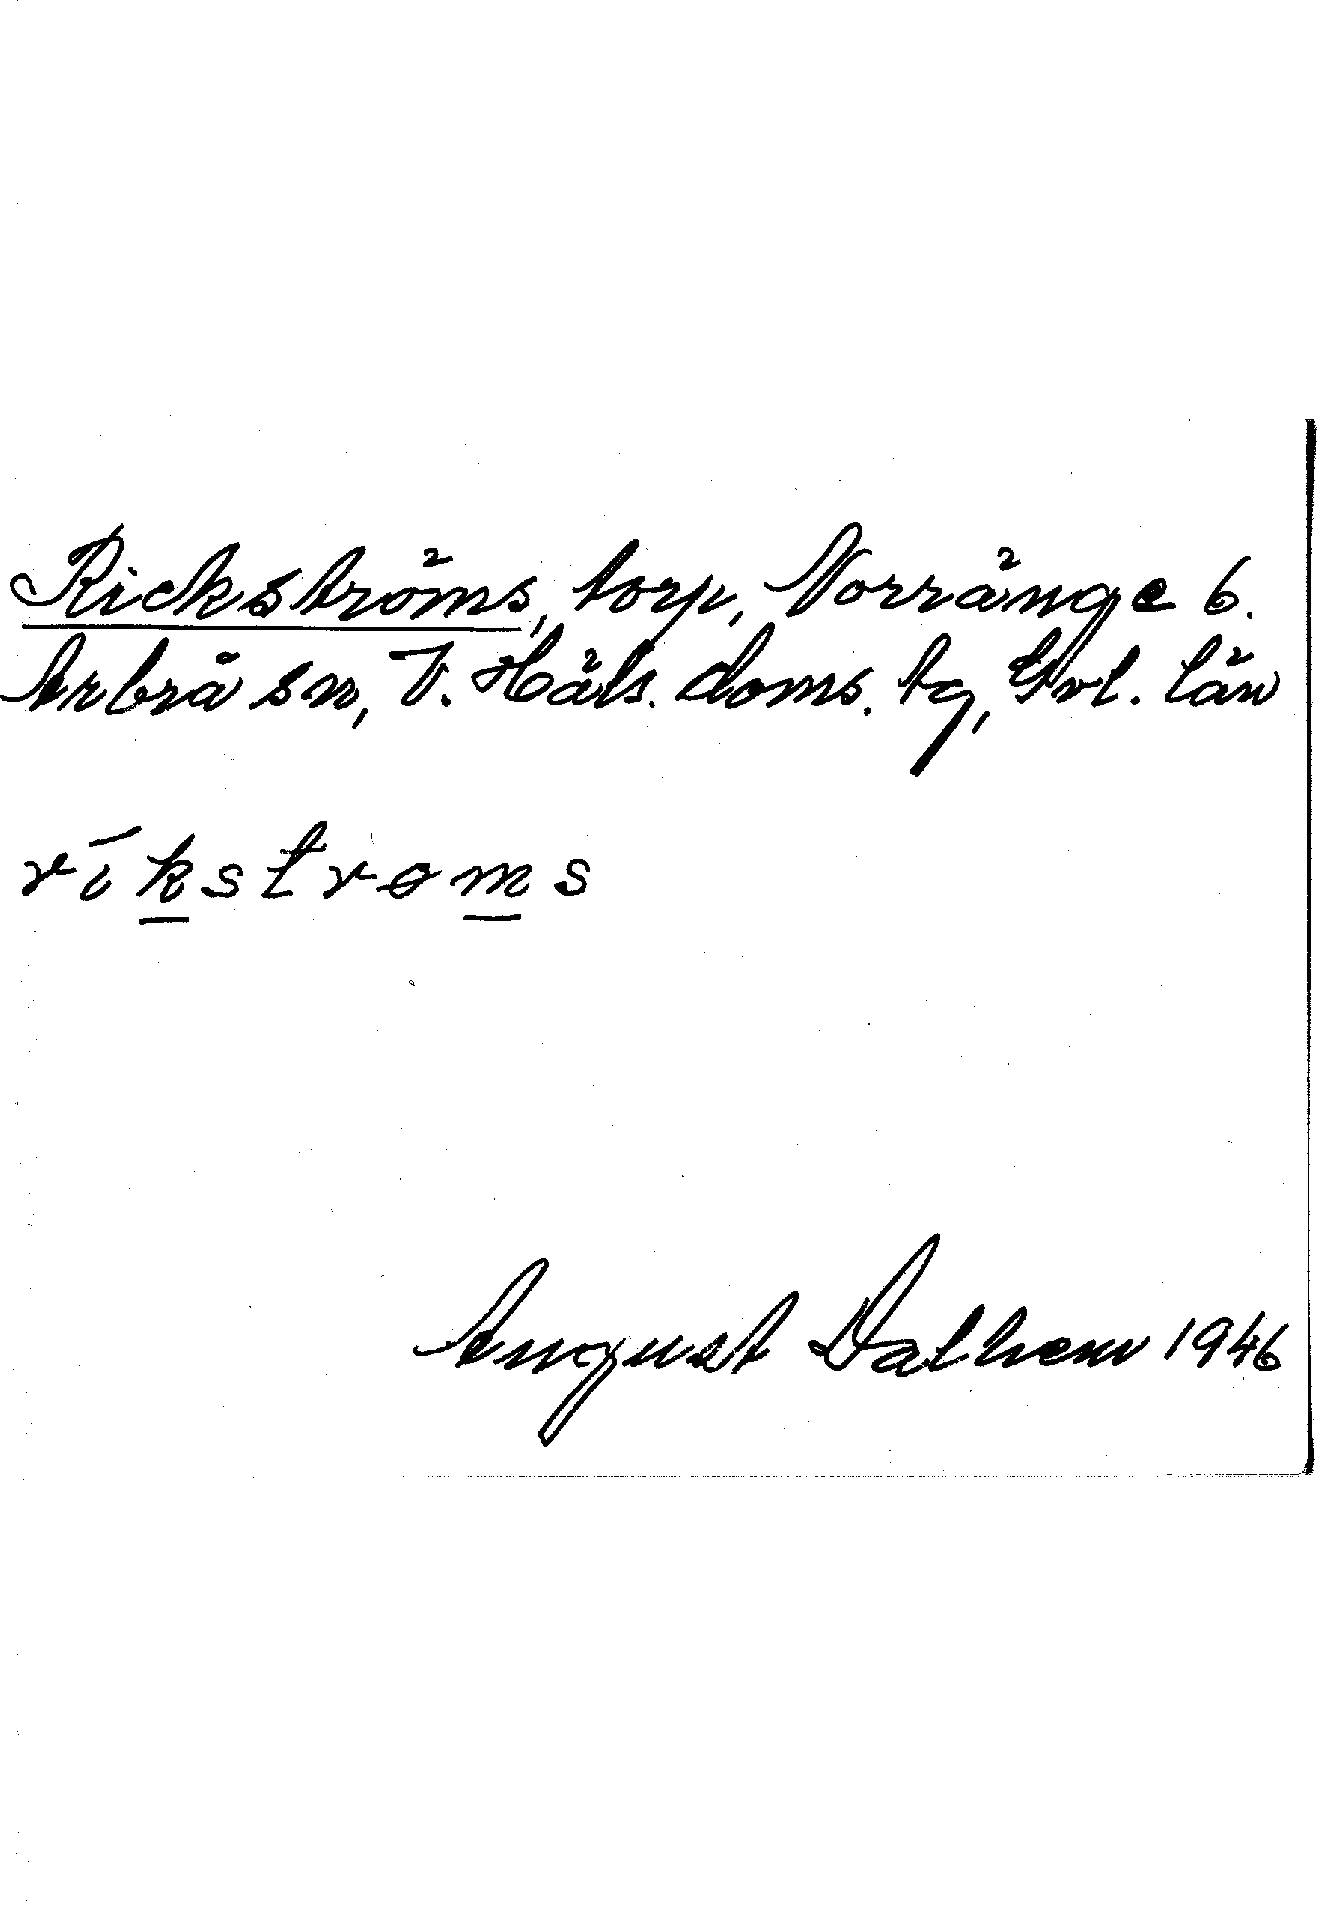 Rickströms, torp, Norränge 6.
Arbrå sn, V. Häls. doms. tg, Gvl. län
ríkstrøms
August Dalhem 1946